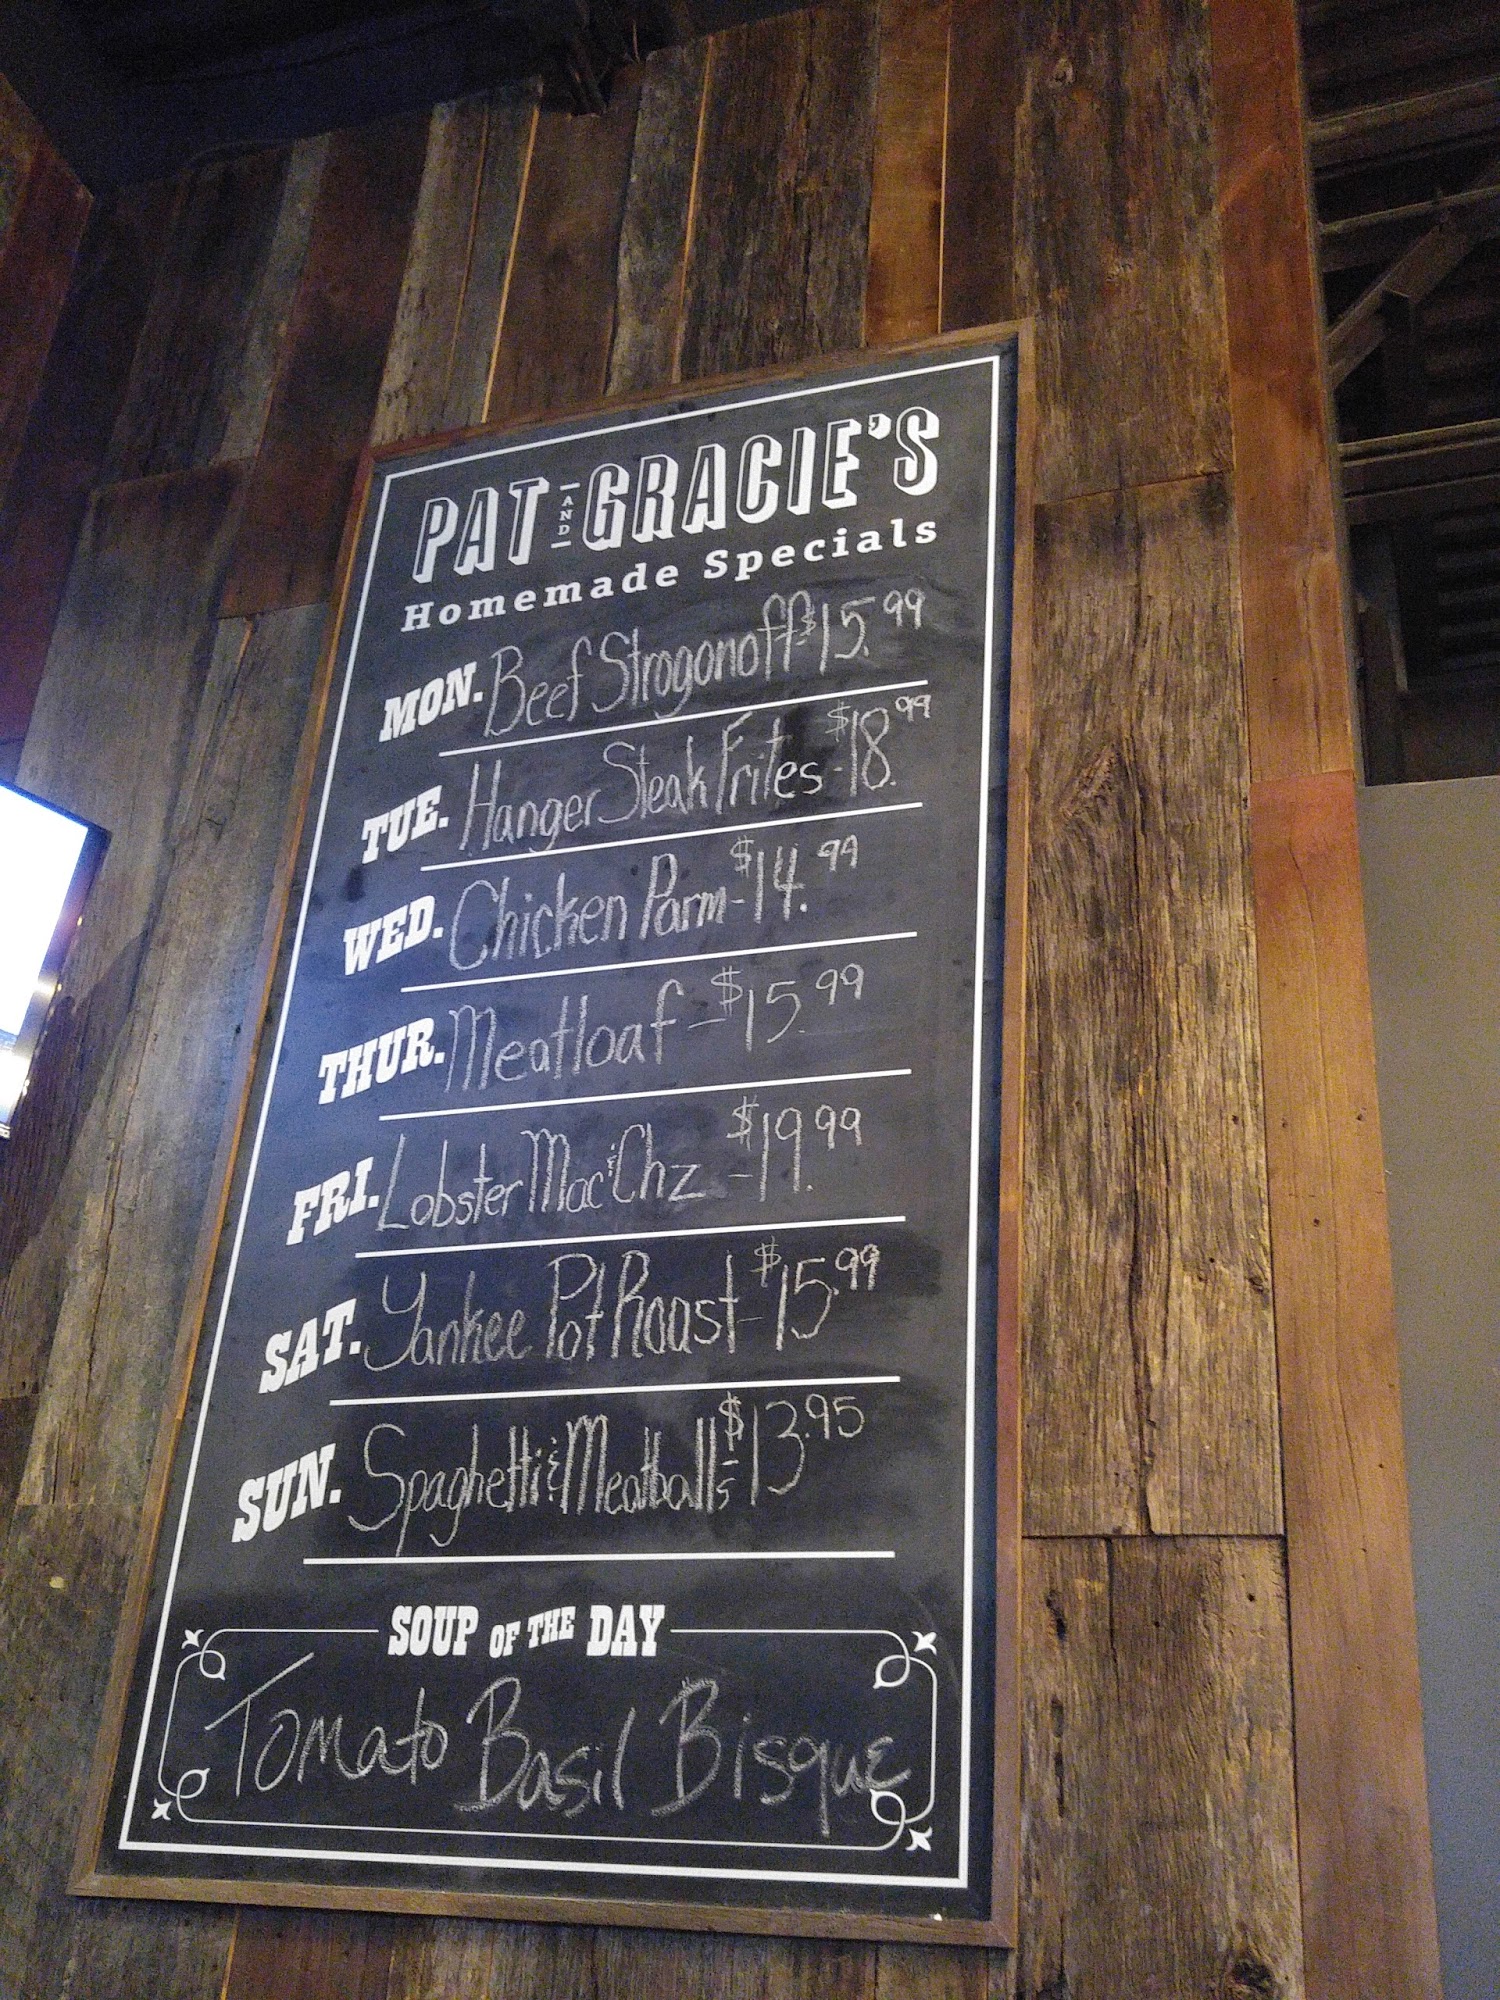 PAT AND GRACIE'S
Homemade Specials
MON. Beef Strogonoff-$15.99
TUE. Hanger Steak Frites-$18.99
WED. Chicken Parm-$14.99
THUR. Meatloaf-$15.99
FRI. Lobster Mac & Chz-$19.99
SAT. Yankee Pot Roast-$15.99
SUN. Spaghetti & Meatballs-$13.95
SOUP OF THE DAY
Tomato Basil Bisque